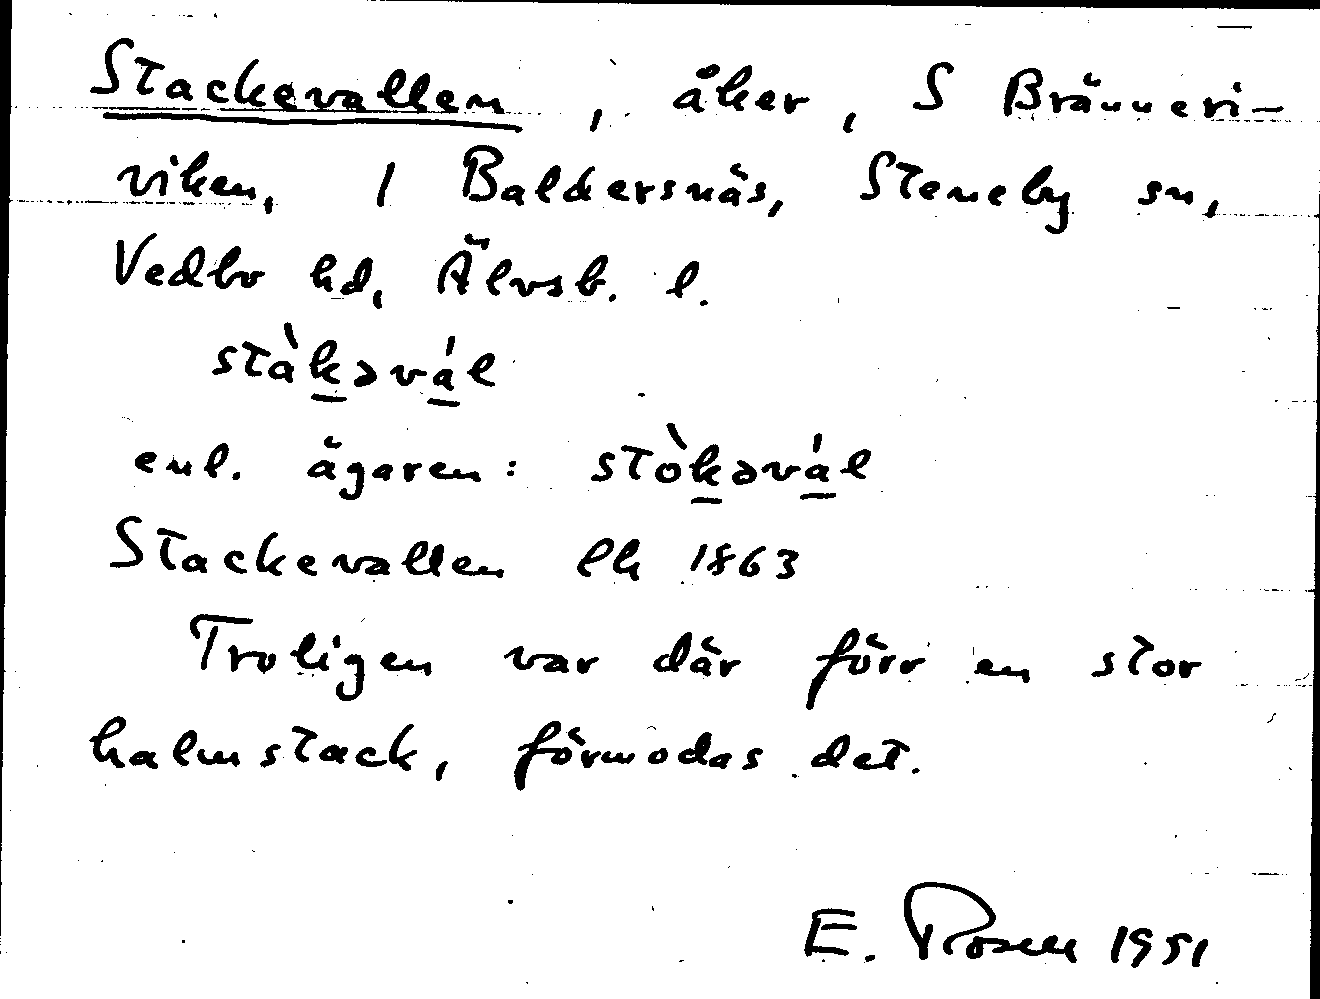 Stackevallen, åker, S Bränneri-
viken, 1 Baldersnäs, Steneby sn,
Vedbo hd, Älvsb. l.
stàk̲əvá̲l
enl. ägaren: stòk̲əvá̲l
Stackevallen lh 1863
Troligen var där förr en stor
halmstack, förmodas det.
E. Rosell 1951